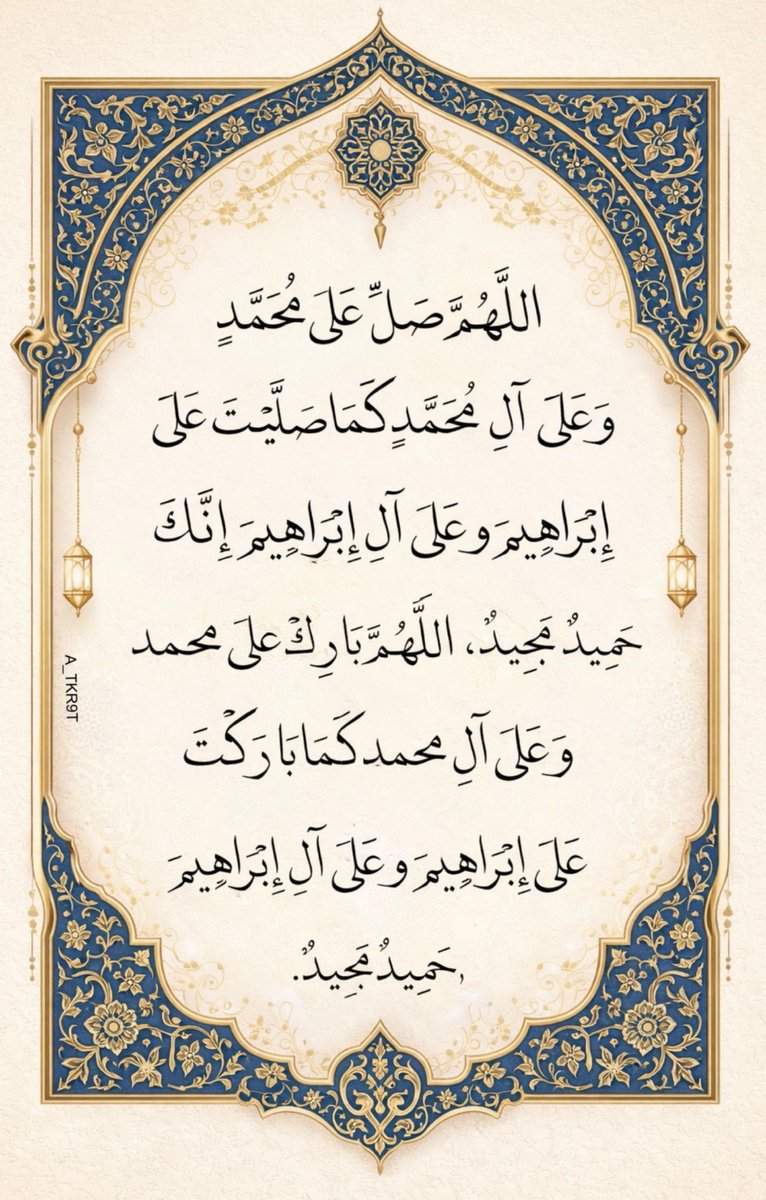 اللَّهُمَّ صَلِّ عَلَى مُحَمَّدٍ
وَعَلَى آلِ مُحَمَّدٍ كَمَا صَلَّيْتَ عَلَى
إِبْرَاهِيمَ وعَلَى آلِ إِبْرَاهِيمَ إِنَّكَ
حَمِيدٌ مَجِيدٌ، اللَّهُمَّ بَارِكْ علَى محمد
وَعَلَى آلِ محمد كَمَا بَارَكْتَ
عَلَى إِبْرَاهِيمَ وعَلَى آلِ إِبْرَاهِيمَ
,حَمِيدٌ مَجِيدٌ.
A_TKR9T